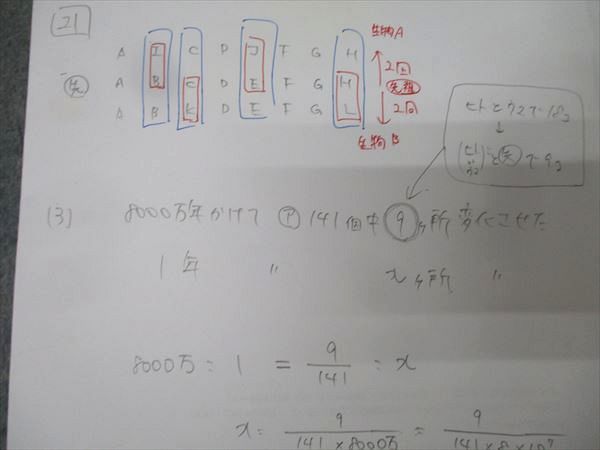 21
生物A
A I C D J F G H
2回
先 A B C D E F G H 先祖
2回
A B K D E F G L
生物B
ヒトとウマで18コ
↓
(ヒト ウマ)と先で9コ
(3) 8000万年かけて ア 141個中 9ヶ所 変化させた
1年 〃 xヶ所 〃
8000万 : 1 = 9/141 : x
x = 9/141×8000万 = 9/141×8×10⁷